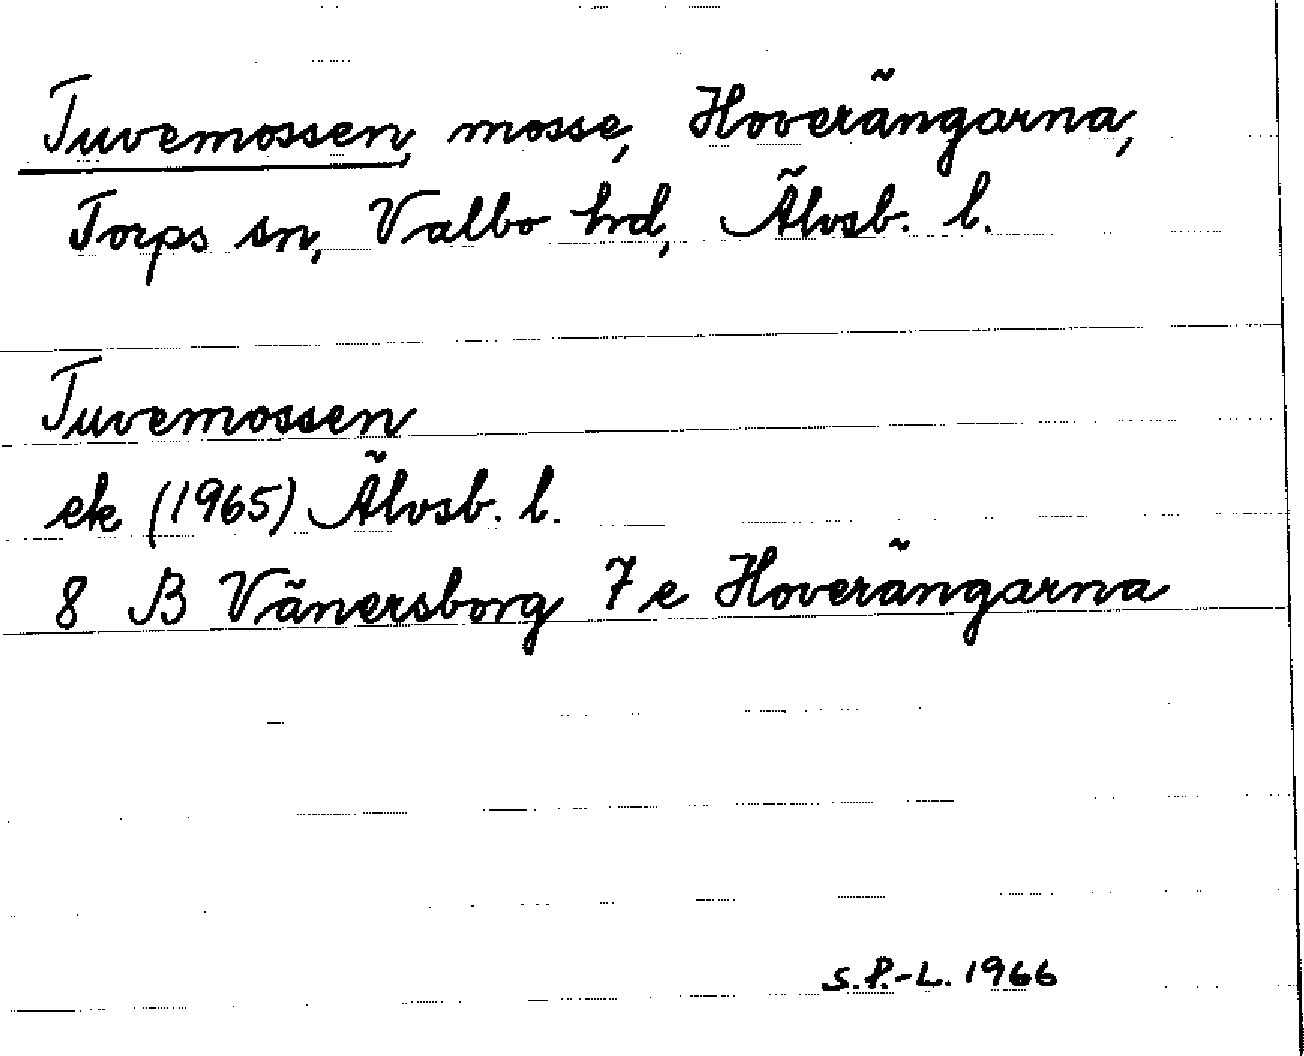 Tuvemossen, mosse, Hoverängarna,
Torps sn, Valbo hd, Älvsb. l.
Tuvemossen
ek (1965) Älvsb. l.
8 B Vänersborg 7 e Hoverängarna
S.P.-L. 1966